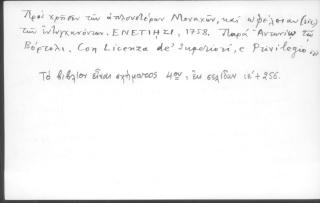 Πρὸς χρῆσιν τῶν ἁπλουστέρων Μοναχῶν, καὶ ὠφέλειαν (sic)
τῶν ἐντυγχανόντων. ΕΝΕΤΙΗΣΙ, 1758. Παρὰ Ἀντωνίῳ τῷ
Βόρτολι. Con Licenza de' Superiori, e Privilegio
Τὸ βιβλίον εἶναι σχήματος 4ον, ἐκ σελίδων + 256.